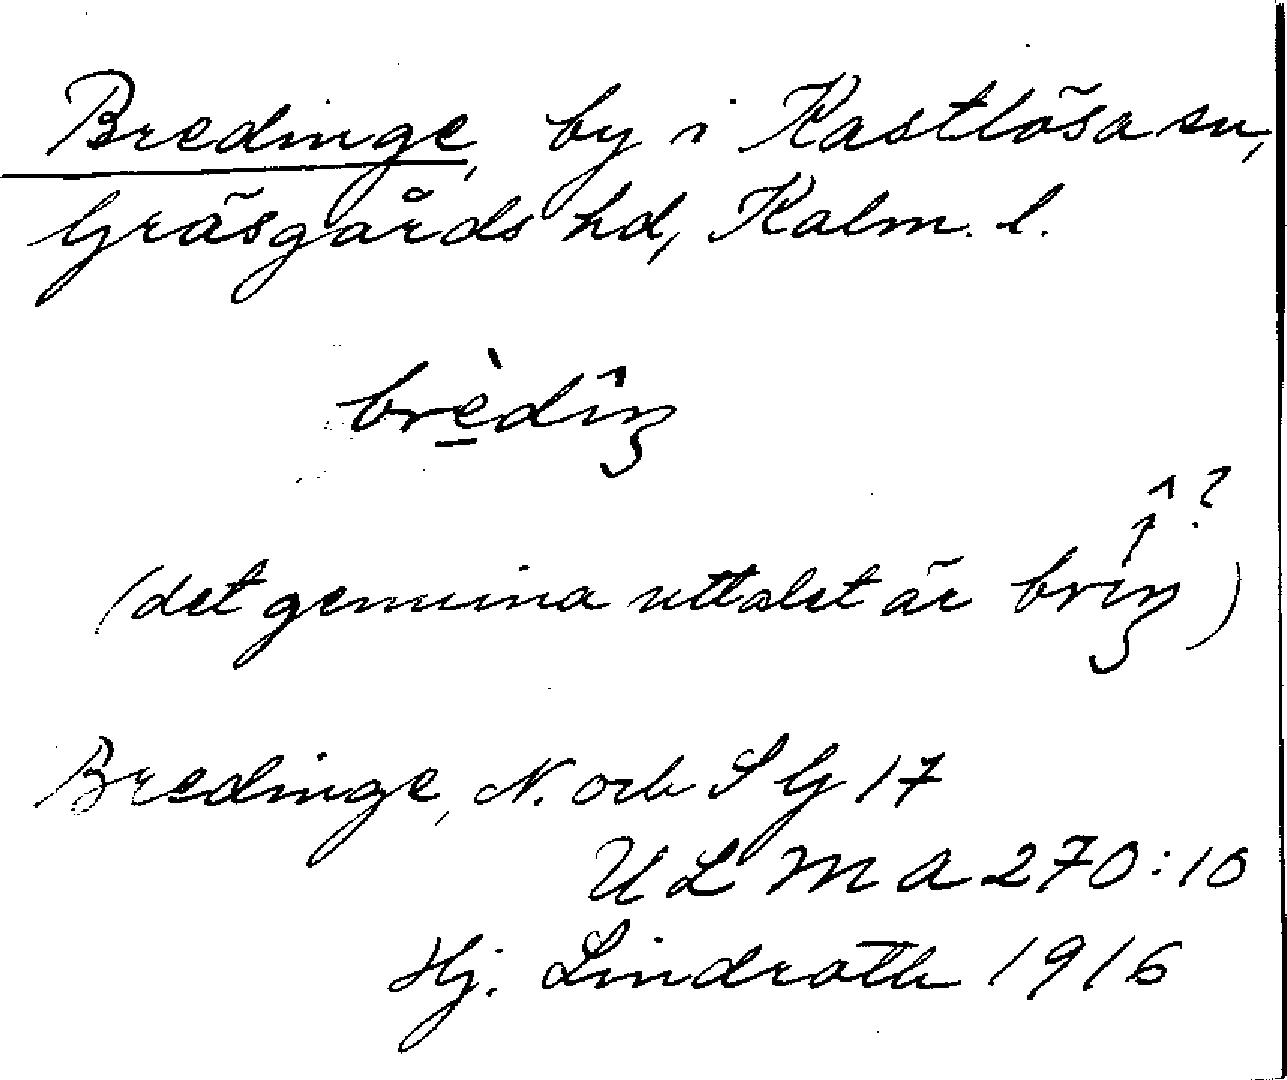 Bredinge, by i Kastlösa sn,
Gräsgårds hd, Kalm. l.
brèdîŋ
(det genuina uttalet är brîŋ ^?)
Bredinge, N. och S G 17
ULMA 270:10
Hj. Lindroth 1916